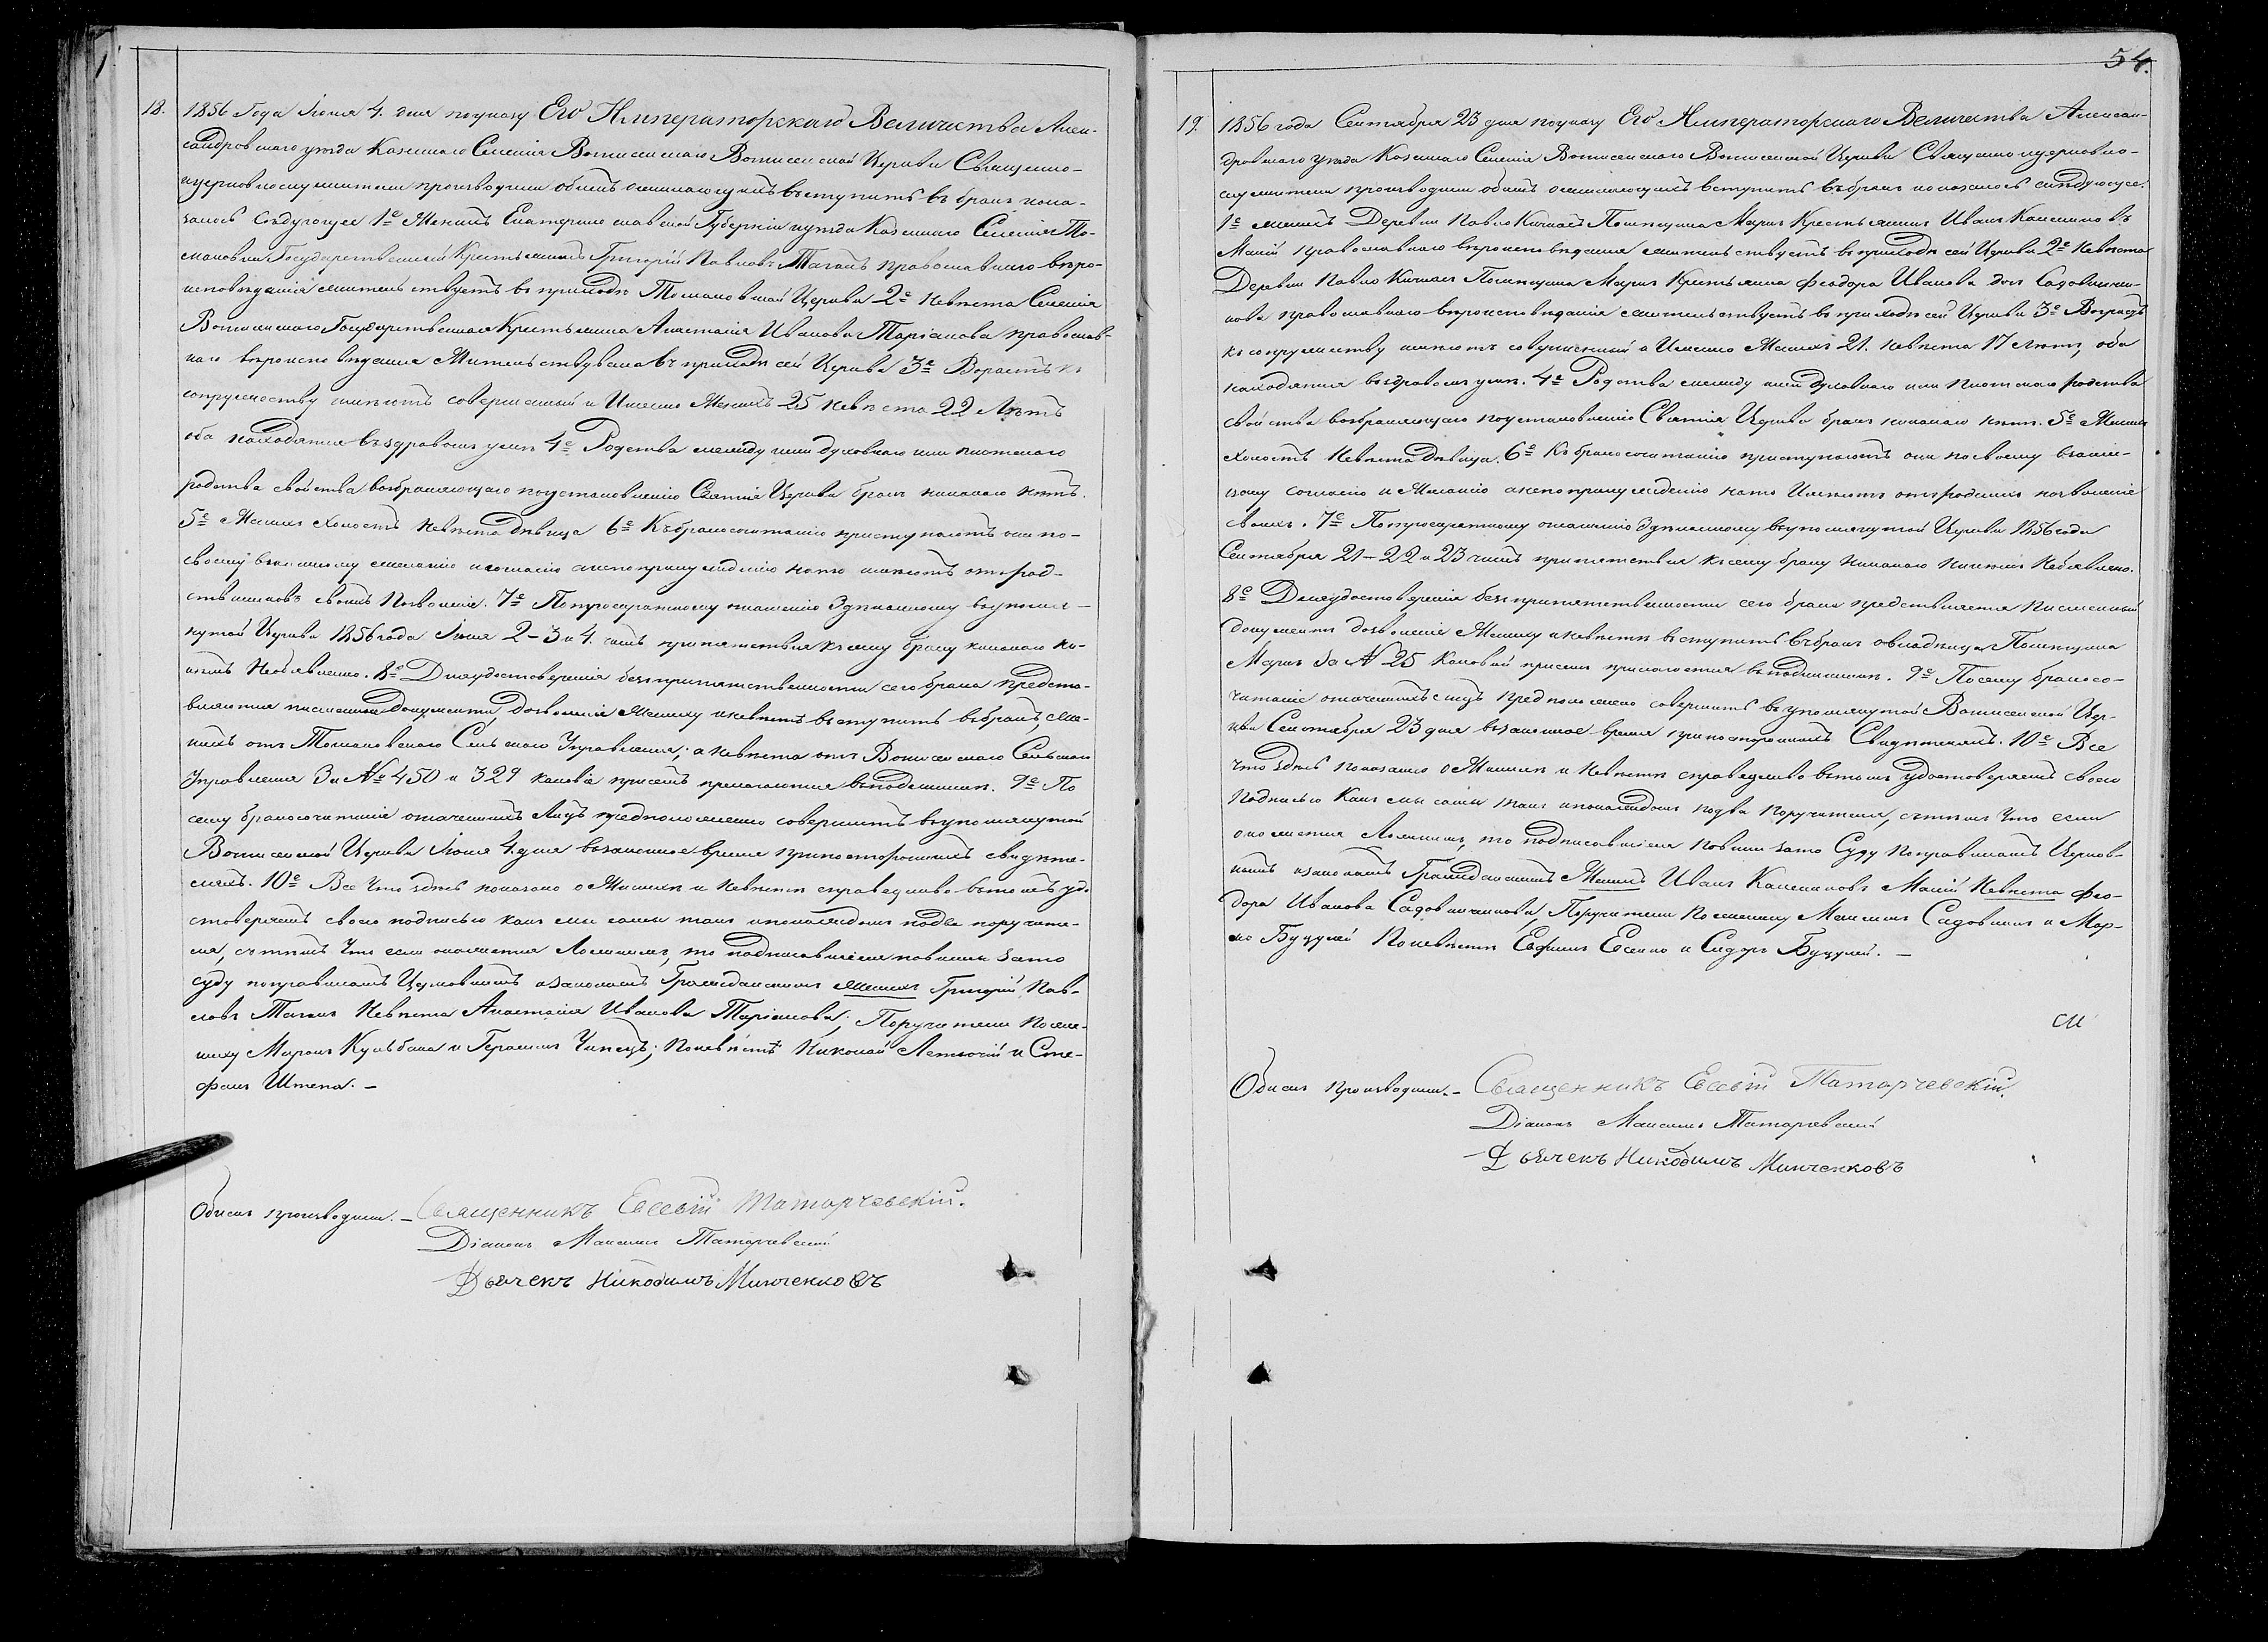 18. 1856 Года Іюня 4. дня по указу Его Императорскаго Величества Алек-
сандровскаго уѣзда Казеннаго Селенія Вознесенскаго Вознесенской Церкви Священно-
и церковнослужители производили обыскъ о желающихъ вступить въ бракъ и ока-
залось слѣдующее 1е Женихъ Екатеринославской Губерніи и уѣзда Казеннаго Селенія То-
маковки Государственный Крестьянинъ Григорій Павловъ Таганъ православнаго вѣро-
исповѣданія жительствуетъ въ приходѣ Томаковской Церкви 2е Невѣста Селенія
Вознесенскаго Государственная Крестьянка Анастасія Иванова православ-
наго вѣроисповѣданія Жительствовала въ приходѣ сей Церкви 3е Возрастъ къ
супружеству имѣютъ совершенный и Именно Женихъ 25 Невѣста 22 Лѣтъ
оба находятся въ здравомъ умѣ 4е Родства между ими духовнаго или плотскаго
родства свойства возбраняющаго по установленію Святыя Церкви бракъ никакого нѣтъ.
5е Женихъ холостъ Невѣста дѣвица 6е Къ бракосочетанію приступаютъ они по-
своему взаимному желанію и согласію а не по принужденію на то имѣютъ отъ род-
ственниковъ своихъ Позволеніе. 7е По троекратному оглашенію Здѣланному въ упомя-
нутой Церкви 1856 года Іюня 2-3 и 4. числъ препятствія къ сему браку никакого ни-
кѣмъ Необъявлено. 8е Для удостовѣренія безпрепятственности сего брака предста-
вляются письменные Документы, Дозволенія Жениху и невѣстѣ вступить въ бракъ, же-
нихъ отъ Томаковскаго Сельскаго Управленія; а невѣста отъ Вознесенскаго Сельскаго
Управленія За № 450 и 329 каковіе присемъ прилагаются въ подлинникѣ. 9е По
сему бракосочетаніе означенныхъ Лицъ предположено совершить въ упомянутой
Вознесенской Церкви Іюня 4. дня въ законное время при постороннихъ свидѣте-
ляхъ. 10е Все Что здѣсь показано о Женихѣ и Невѣстѣ справедливо въ томъ удо-
стовѣряемъ своею подписью какъ они сами такъ и по каждомъ по два поручите-
ля, съ тѣмъ Что если окажется Ложнымъ, то подписавшіеся повинны за то
суду по правиламъ Церковнымъ и законамъ Гражданскимъ Женихъ Григорій Пав-
ловъ Таганъ Невѣста Анастасія Иванова; Поручители По же-
ниху Миронъ Кульбака и Герасимъ; По невѣстѣ Николай и Сте-
фанъ Штепа. -
Обыскъ производили. - Священникъ Евсевій Татарчевскій.
Діаконъ Максимъ Татарчевскій
Дьячекъ Никодимъ Минченковъ
54.
19. 1856 года Сентября 23 дня по указу Его Императорскаго Величества Алексан-
дровскаго уѣзда Казеннаго Селенія Вознесенскаго Вознесенской Церкви Священно и церковно-
служители производили обыскъ о желающихъ вступить въ бракъ и оказалось слѣдующее.
1е женихъ Деревни Павло Кичкасъ Помѣщика Маркъ Крестьянинъ Иванъ Калениковъ
православнаго вѣроисповѣданія жительствуетъ въ приходѣ сей Церкви 2е Невѣста
Деревни Павло Кичкасъ Помѣщика Маркъ Крестьянка Феодора Иванова дочь Садовничи-
кова православнаго вѣроисповѣданія жительствуетъ въ приходѣ сей Церкви 3е Возрастъ
къ супружеству имѣютъ совершенный и Именно Женихъ 21. Невѣста 17 лѣтъ, оба
находятся въ здравомъ умѣ. 4е Родства между ими духовнаго или Плотскаго родства
свойства возбраняющаго по установленію Святыя Церкви бракъ никакого нѣтъ. 5е Женихъ
холостъ Невѣста Дѣвица. 6е Къ бракосочетанію приступаютъ они по своему взаим-
ному согласію и Желанію а не по принужденію на то Имѣютъ отъ родныхъ позволеніе
своихъ. 7е По троекратному оглашенію Здѣланному въ упомянутой Церкви 1856 года
Сентября 21-22 и 23 числъ препятствія къ сему браку никакого Никѣмъ Необъявлено.
8е Для удостовѣренія безпрепятственности сего брака представляется Письменный
документъ дозволеніе Жениху и невѣстѣ вступить въ бракъ Помѣщика
Маркъ За № 25 каковый присемъ прилагается въ подлинникѣ. 9е По сему бракосо-
четаніе означенныхъ лицъ предположено совершить въ упомянутой Вознесенской Цер-
кви Сентября 23 дня въ законное время при постороннихъ Свидѣтеляхъ. 10е Все
Что здѣсь Показано о Женихѣ и Невѣстѣ справедливо въ томъ удостовѣряемъ своею
Подписью Какъ они сами такъ и по каждомъ по два Поручителя, съ тѣмъ Что если
окажется Ложнымъ, то подписавшіеся Повинны за то Суду По правиламъ Церков-
нымъ и законамъ Гражданскимъ Женихъ Иванъ Калениковъ Невѣста Фео-
дора Иванова Садовничикова, Поручители По жениху Максимъ Садовникъ и Мар-
ко Буцулей По невѣстѣ Ефимъ Есенко и Сидоръ Буцулей. -
Обыскъ Производили. - Священникъ Евсевій Татарчевскій.
Діаконъ Максимъ Татарчевскій
Дьячекъ Никодимъ Минченковъ